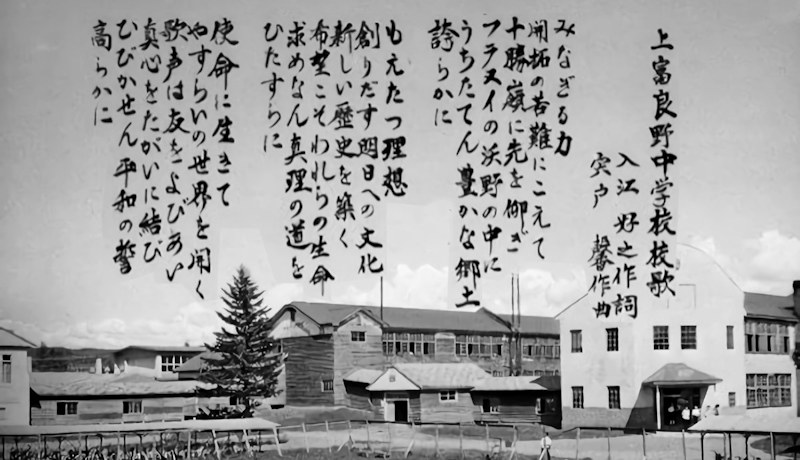 上富良野中学校校歌
入江好之作詞
宍戸馨作曲
みなぎる力
開拓の苦難にこえて
十勝嶺に先を仰ぎ
フラヌイの沃野の中に
うちたてん豊かな郷土
誇らかに
もえたつ理想
創りだす明日への文化
新しい歴史を築く
希望こそわれらの生命
求めなん真理の道を
ひたすらに
使命に生きて
やすらいの世界を開く
歌声は友をよびあい
真心をたがいに結び
ひびかせん平和の誓
高らかに